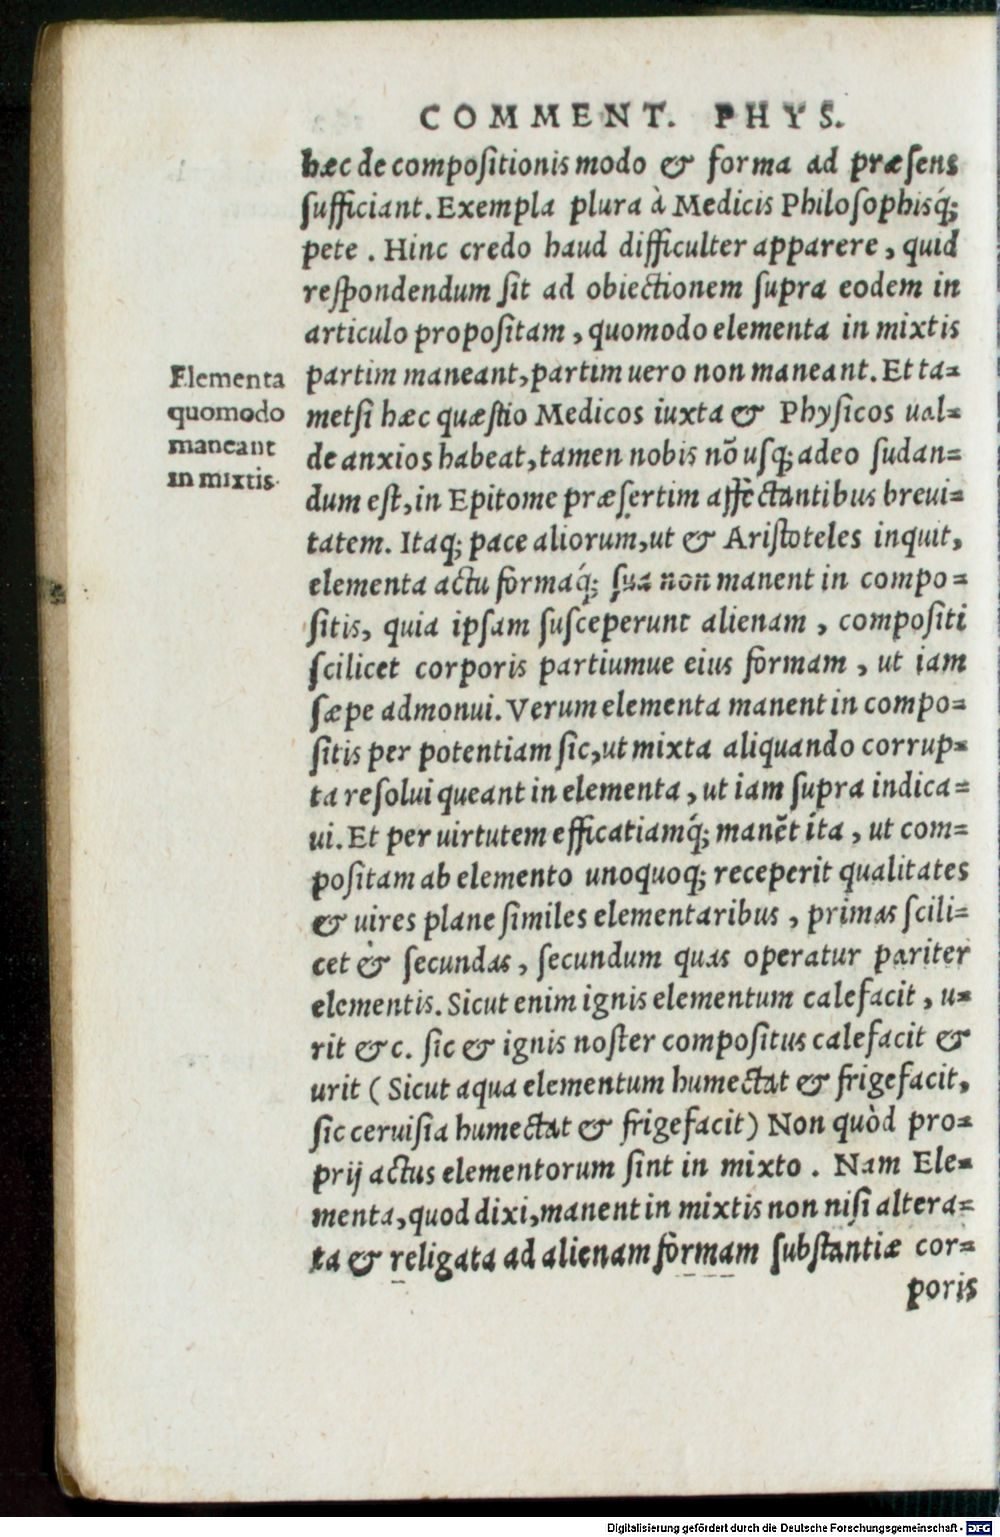 COMMENT. PHYS.
hæc de compositionis modo & forma ad præsens
sufficiant. Exempla plura à Medicis Philosophisq́;
pete. Hinc credo haud difficulter apparere, quid
respondendum sit ad obiectionem supra eodem in
articulo propositam, quomodo elementa in mixtis
partim maneant, partim uero non maneant. Et ta=
metsi hæc quæstio Medicos iuxta & Physicos ual=
de anxios habeat, tamen nobis nõ usq; adeo sudan=
dum est, in Epitome præsertim affectantibus breui=
tatem. Itaq; pace aliorum, ut & Aristoteles inquit,
elementa actu formaq́; sua non manent in compo=
sitis, quia ipsam susceperunt alienam, compositi
scilicet corporis partiumue eius formam, ut iam
sæpe admonui. Verum elementa manent in compo=
sitis per potentiam sic, ut mixta aliquando corrup=
ta resolui queant in elementa, ut iam supra indica=
ui. Et per uirtutem efficatiamq́; manẽt ita, ut com=
positam ab elemento unoquoq; receperit qualitates
& uires plane similes elementaribus, primas scili=
cet & secundas, secundum quas operatur pariter
elementis. Sicut enim ignis elementum calefacit, u=
rit &c. sic & ignis noster compositus calefacit &
urit (Sicut aqua elementum humectat & frigefacit,
sic ceruisia humectat & frigefacit) Non quòd pro=
prij actus elementorum sint in mixto. Nam Ele=
menta, quod dixi, manent in mixtis non nisi altera=
ta & religata ad alienam formam substantiæ cor=
poris
Elementa
quomodo
maneant
in mixtis.
Digitalisierung gefördert durch die Deutsche Forschungsgemeinschaft - DFG